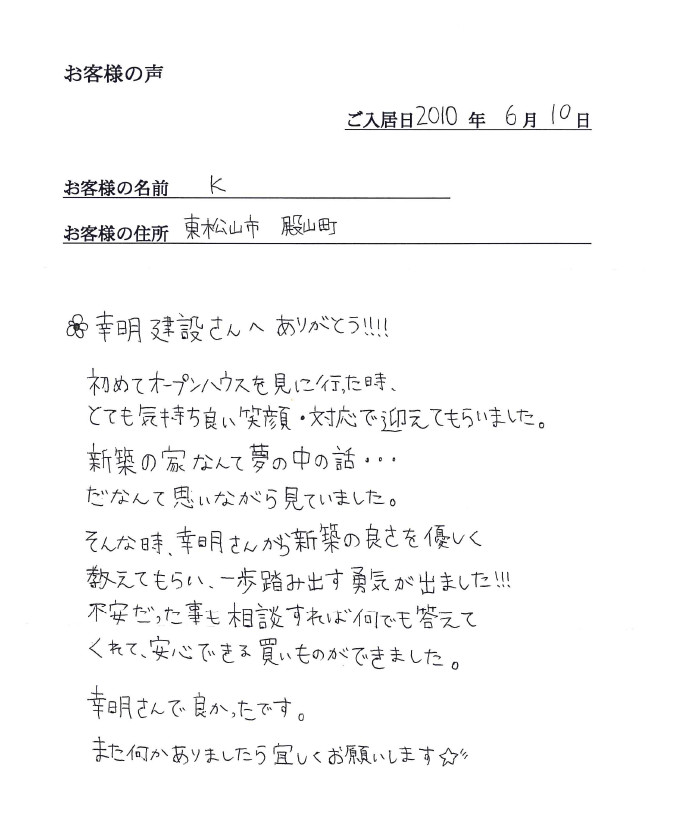 お客様の声
ご入居日2010年 6月10日
お客様の名前 K
お客様の住所 東松山市 殿山町
幸明建設さんへ ありがとう!!!!
初めてオープンハウスを見に行った時、
とても気持ち良い笑顔・対応で迎えてもらいました。
新築の家なんて夢の中の話・・・
だなんて思いながら見ていました。
そんな時、幸明さんから新築の良さを優しく
教えてもらい、一歩踏み出す勇気が出ました!!!
不安だった事も相談すれば何でも答えて
くれて、安心できる買いものができました。
幸明さんで良かったです。
また何かありましたら宜しくお願いします☆